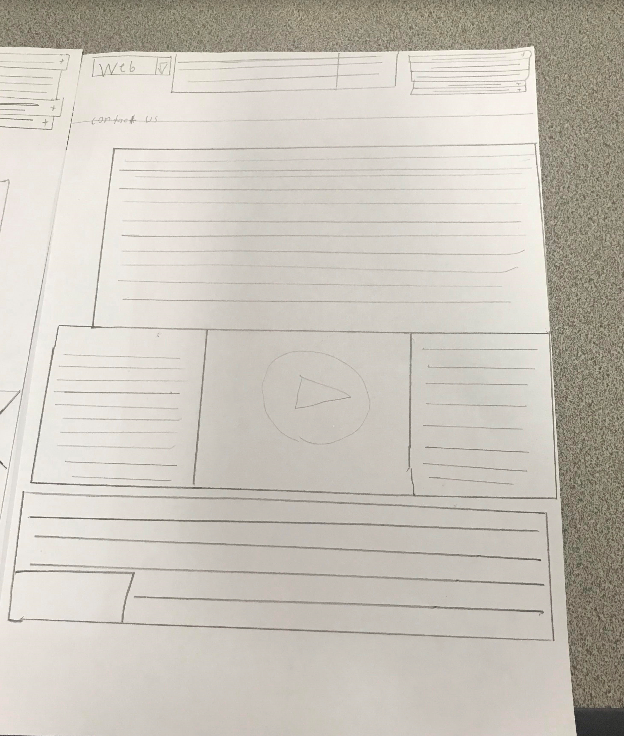 Web
contact us